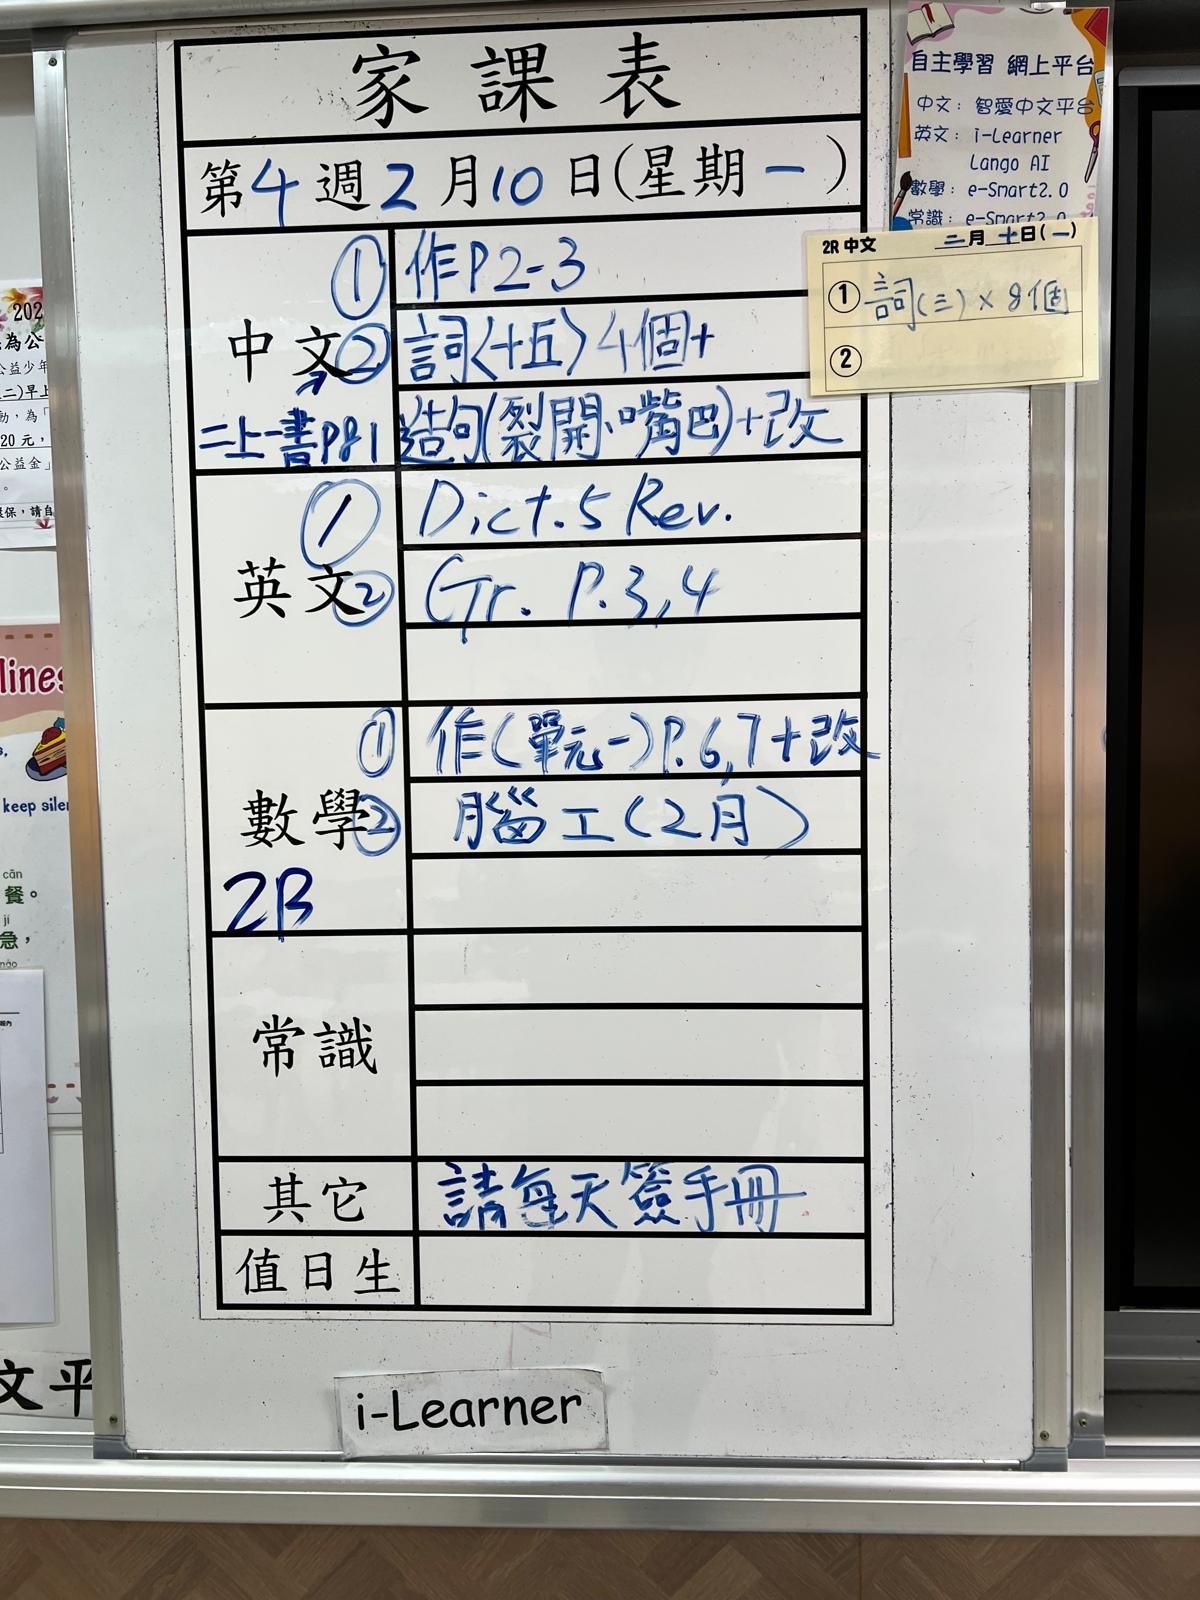 家課表
第4週2月10日(星期一)
中文
① 作P2-3
② 詞〈十五〉4個+
造句(裂開、嘴巴)+改
二上一書P81
英文
① Dict.5 Rev.
② Gr. P.3,4
數學
① 作(單元一)P.6,7+改
② 腦工(2月)
2B
常識
其它
請每天簽手冊
值日生
i-Learner
自主學習 網上平台
中文: 智愛中文平台
英文: i-Learner
Lango AI
數學: e-Smart2.0
常識: e-Smart2.0
2R 中文 二月十日(一)
① 詞(三)×8個
②
202
為公
公益少年
二)早上
動,為「
20元,
公益金」
。
環保,請自
lines
keep siler
cān
餐。
jí
急,
文平